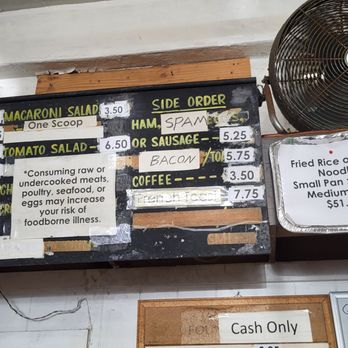 MACARONI SALAD 3.50
One Scoop
TOMATO SALAD 6.50
*Consuming raw or
undercooked meats,
poultry, seafood, or
eggs may increase
your risk of
foodborne illness.
SIDE ORDER
HAM, SPAM
OR SAUSAGE 5.25
BACON 5.75
COFFEE 3.50
French Toast 7.75
Fried Rice
Small Pan
Medium
Cash Only